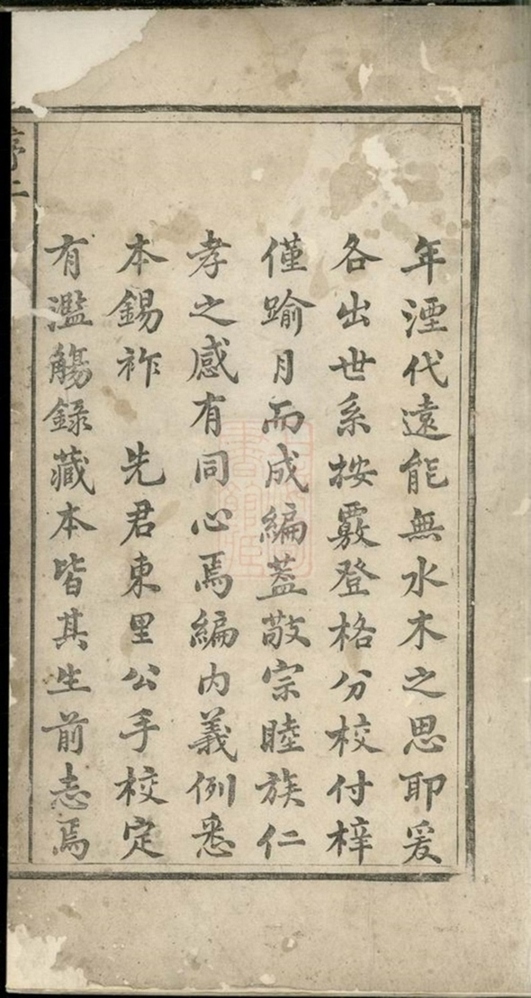 年湮代遠能無水木之思耶爰
各出世系按覈登格分校付梓
僅踰月而成編蓋敬宗睦族仁
孝之感有同心焉編内義例悉
本錫祚　先君東里公手校定
有濫觴錄藏本皆其生前志焉
序二